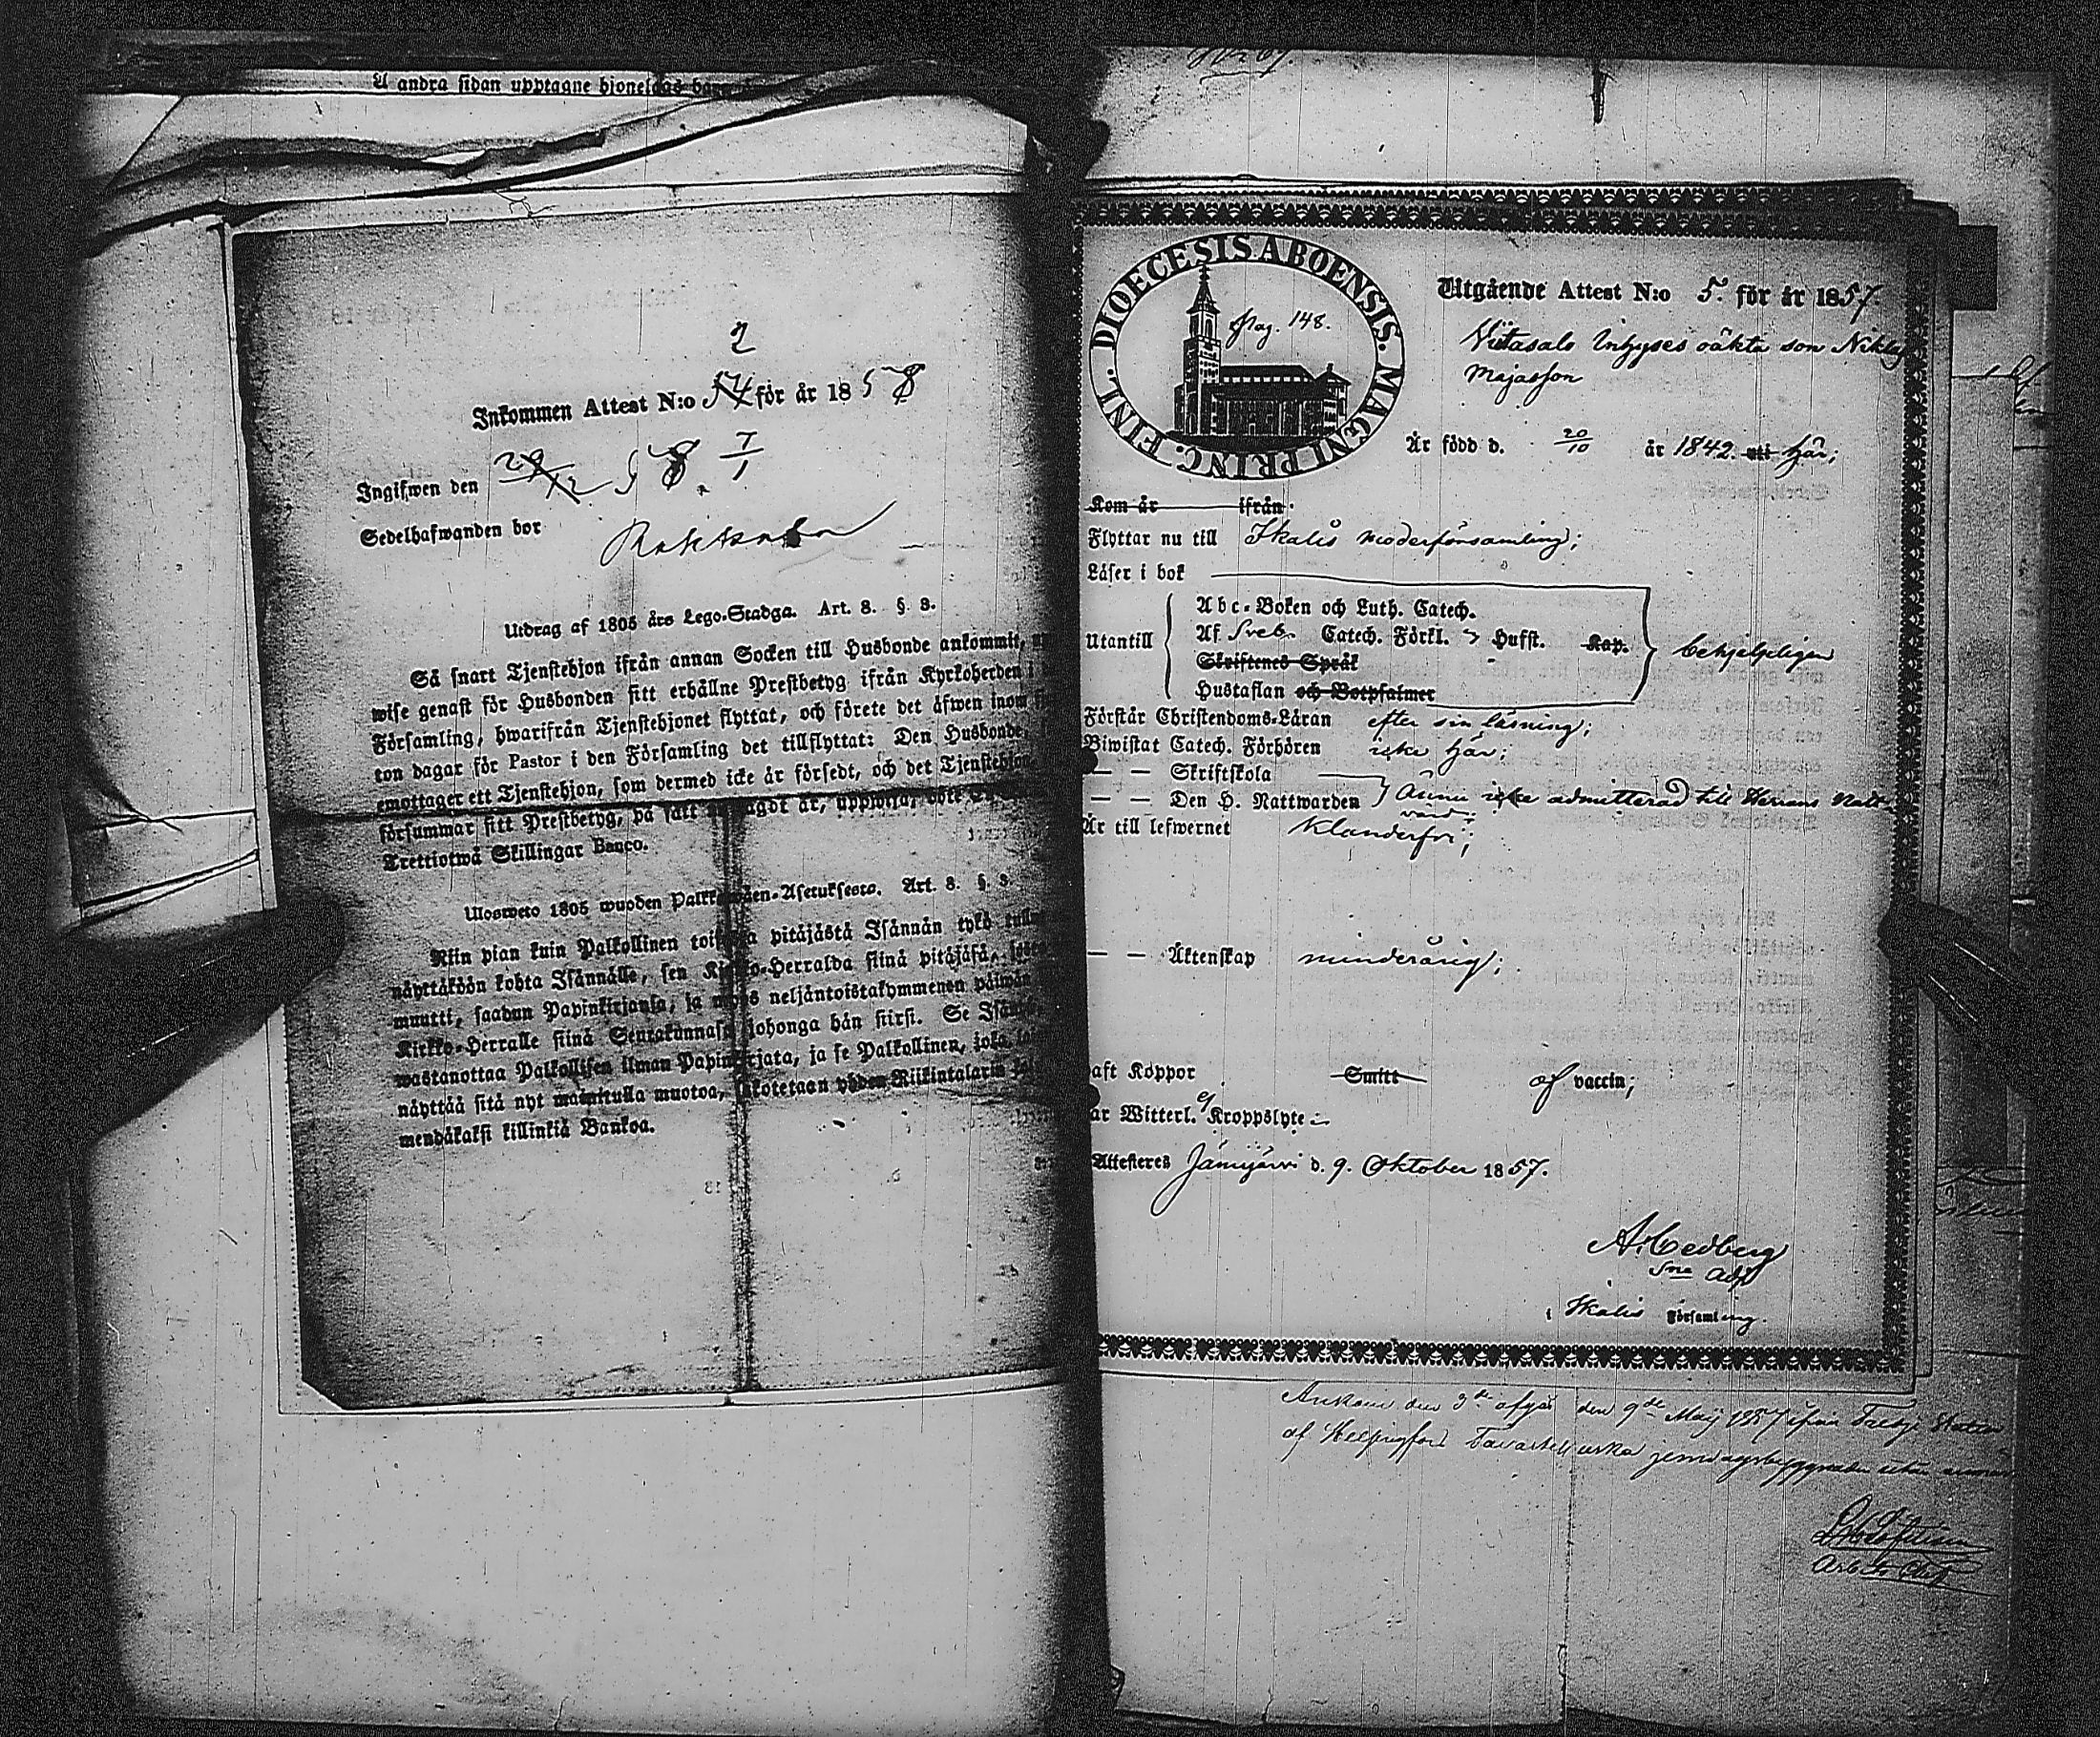 å andra sidan upptagne hjonelags
Inkommen Attest N:o 54 för år 1858
2
Ingifwen den 29/12 58. 7/1
Sedelhafwanden bor
Utdrag af 1805 års Lego-Stadga. Art. 8. §. 8.
Så snart Tjenstehjon ifrån annan Socken till Husbonde ankommit,
wise genast för Husbonden sitt erhållne Prestbetyg ifrån Kyrkoherden i
Församling, hwarifrån Tjenstehjonet flyttat, och förete det äfwen inom
ton dagar för Pastor i den Församling det tillflyttat: Den Husbonde,
emottager ett Tjenstehjon, som dermed icke är försedt, och det Tjenstehjon
försummar sitt Prestbetyg, på sätt sagdt är, uppwisa, böte
Trettiotwå Skillingar Banco.
Ulosweto 1805 wuoden Palkkawäen-Asetuksesta. Art. 8. §. 8.
Niin pian kuin Palkollinen toisesta pitäjästä Isännän tykö
näyttäköön kohta Isännälle, sen Kirkko-Herralda siinä pitäjäsä, josta
muutti, saadun Papinkirjansa, ja myös neljäntoistakymmenen päiwän
Kirkko-Herralle siinä Seurakunnasa johonga hän siirsi. Se Isändä,
wastanottaa Palkollisen ilman Papinkirjata, ja se Palkollinen, joka
näyttää sitä nyt mainitulla muotoa, sakotetaan yhden Riikintalarin
mendäkaksi killinkiä Bankoa.
DIOECESIS ABOENSIS. MAGNI PRINC. FINL.
Pag. 148.
Utgående Attest N:o 5. för år 1857.
Viitasalo Inhyses oäkta son Niklas
Majasson
Är född d. 20/10 år 1842. uti här;
Kom år ifrån
Flyttar nu till Ikalis moderförsamling;
Läser i bok
Utantill
Abc-Boken och Luth. Catech.
Af Sveb. Catech. Förkl. Hufst. Kap.
Skriftenes Språk
Hustaflan och Botpsalmer
behjelpligen
Förstår Christendoms-Läran efter sin läsning;
Biwistat Catech. Förhören icke här;
— — Skriftskola
— — Den H. Nattwarden
Ännu icke admitterad till Herrans Natt-
vard;
Är till lefwernet Klanderfri;
— — Äktenskap minderårig;
aft Koppor Smitt af vaccin;
ar Witterl. ej Kroppslyte
Attesteres Jämijärvi d. 9. Oktober 1857.
A. Cedberg
Sne Adj
i Ikalis Församling.
Ankom den 3de afgår den 9de Maij 1857 ifrån
af Helsingfors Tavastehuska jernvägsbyggnaden utan